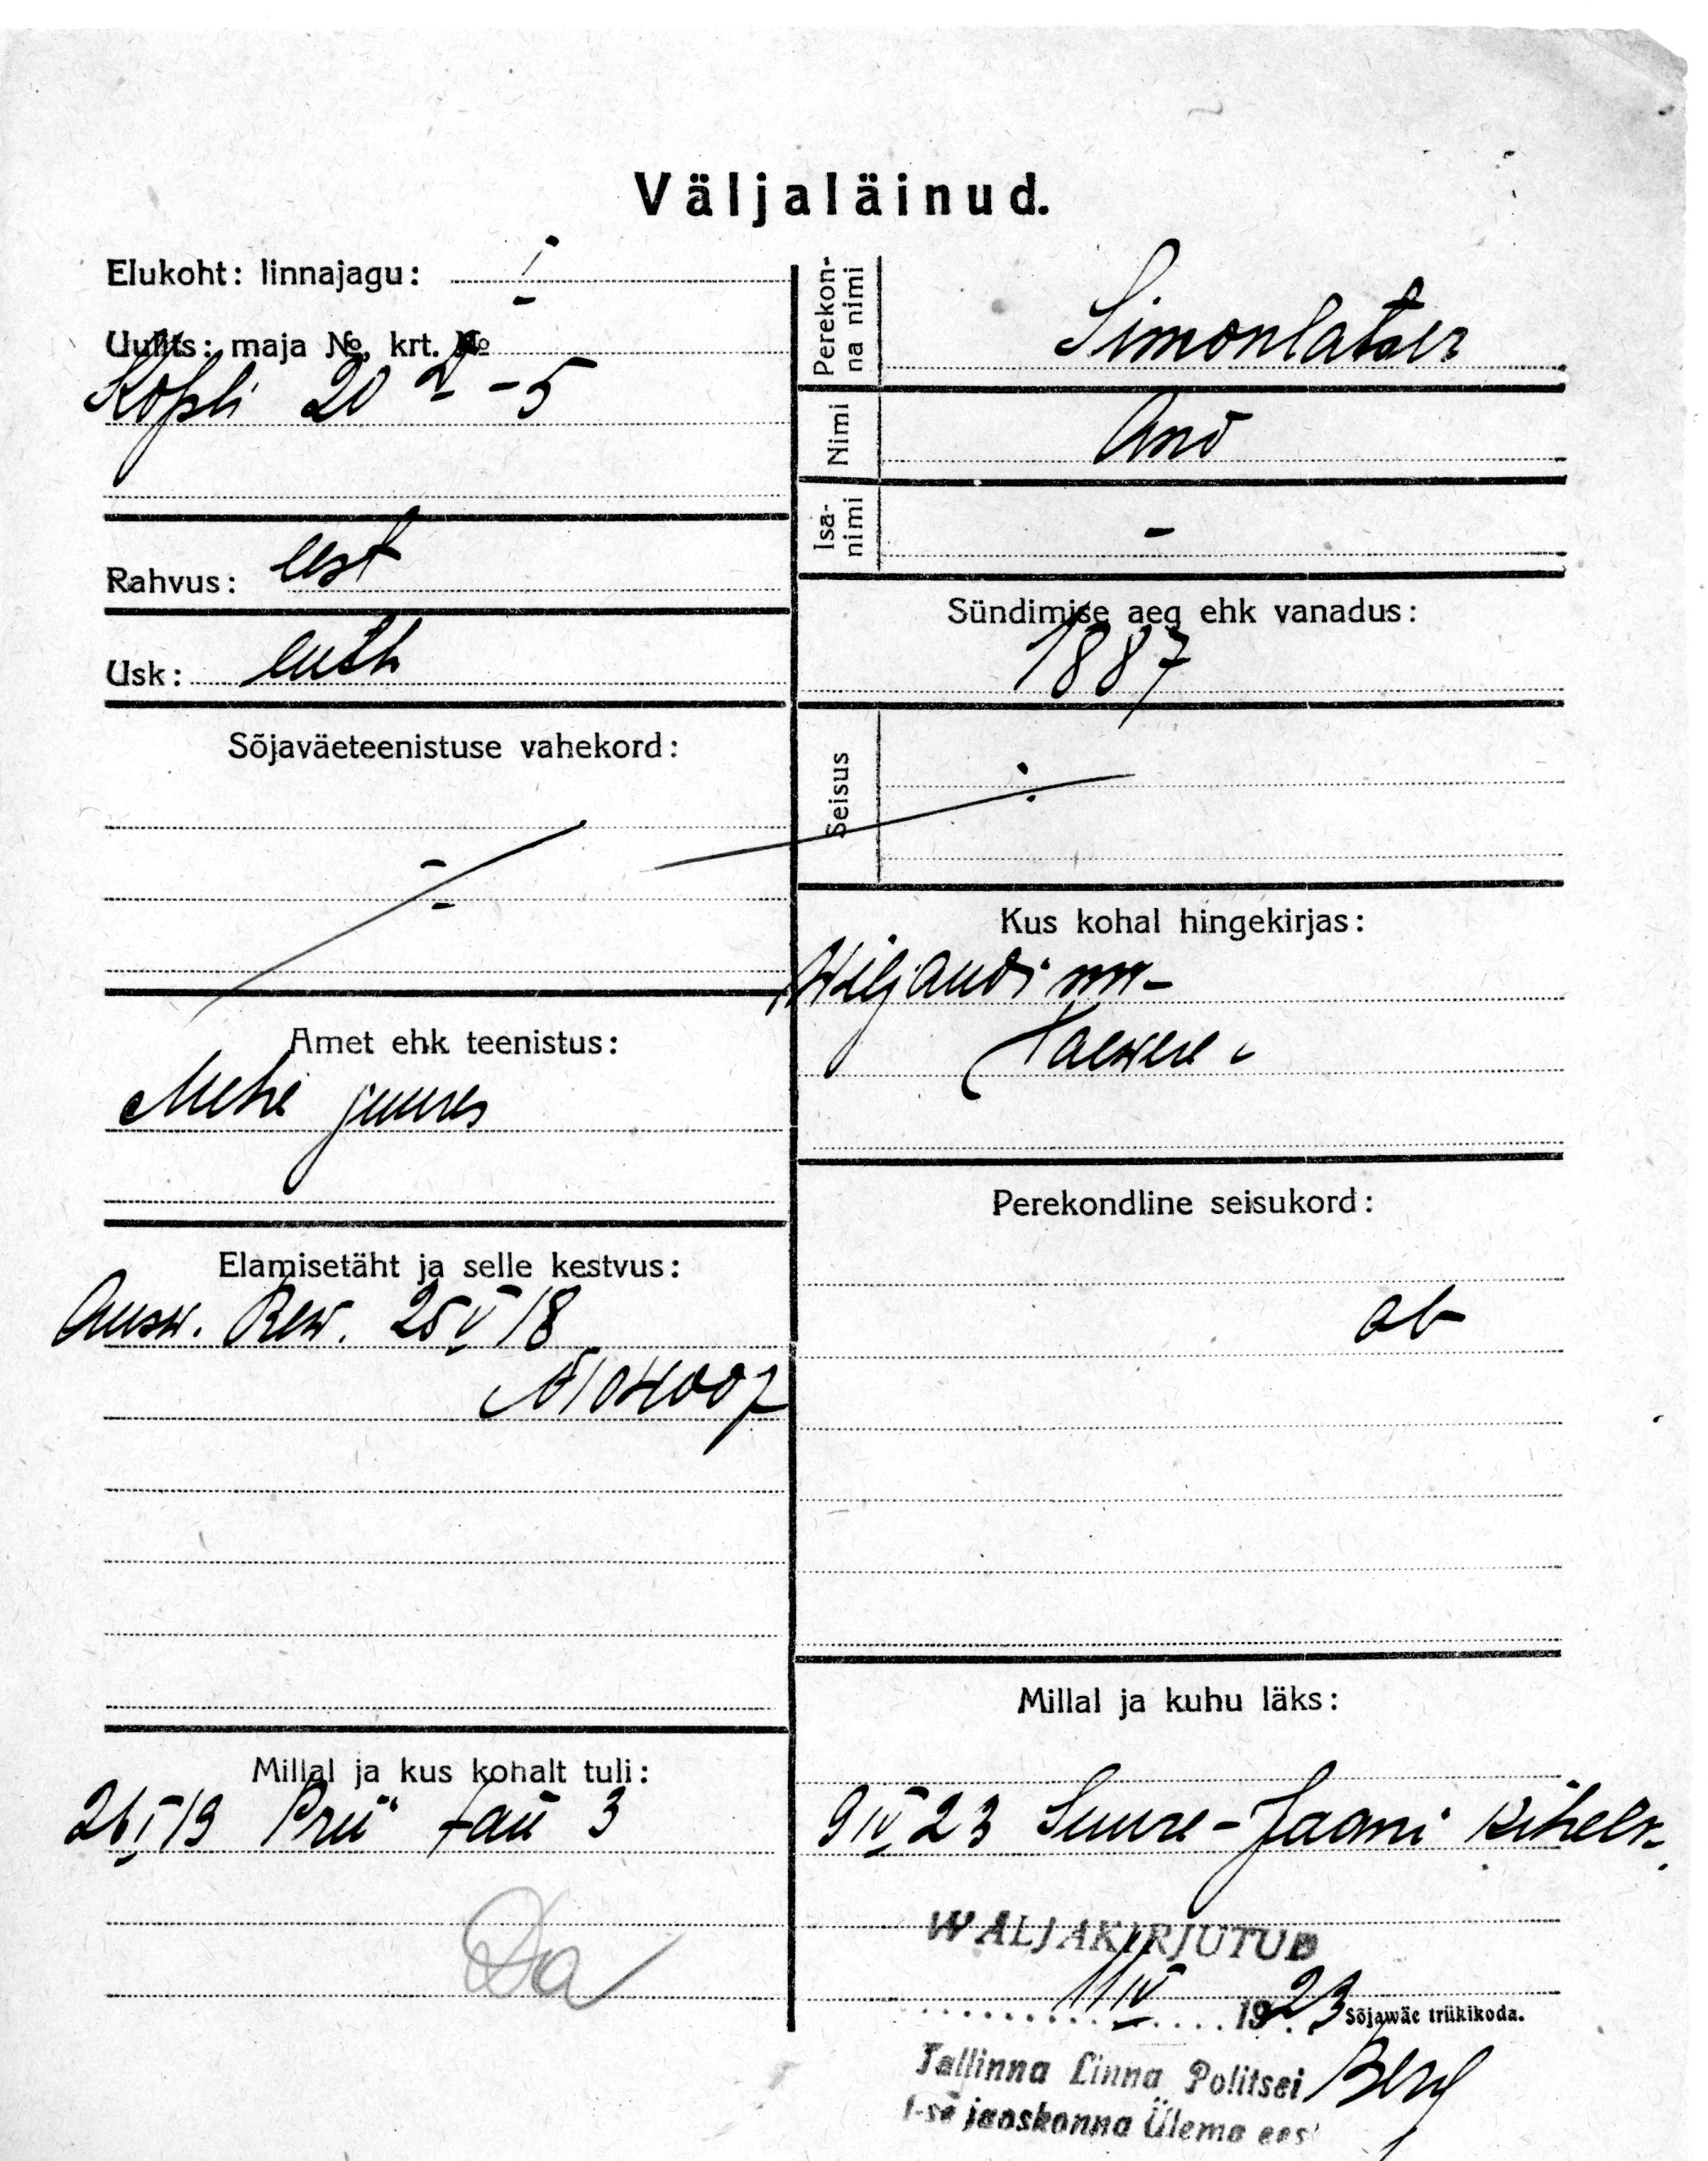 Väljaläinud.
Elukoht: linnajagu: I
Uulits: maja №, krt. №
Kopli 20 2 - 5
Rahvus: eest
Usk: luth
Sõjaväeteenistuse vahekord:
Amet ehk teenistus:
Mehe juures
Elamisetäht ja selle kestvus:
Ausw. Rew. 25 V 18
№ 104007
Millal ja kus kohalt tuli:
26 I 19 Prii tän 3
Da
Perekonna nimi Simonlatser
Nimi Ano
Isanimi -
Sündimise aeg ehk vanadus:
1887
Seisus
Kus kohal hingekirjas:
Wiljandi mm-
Taewere
Perekondline seisukord:
ab
Millal ja kuhu läks:
9 IV 23 Suure-Jaani kihelk.
WALJAKIRJUTUD
11 IV 1923
Sõjawäe trükikoda.
Tallinna Linna Politsei Berg
1-se jaoskonna Ülema ees